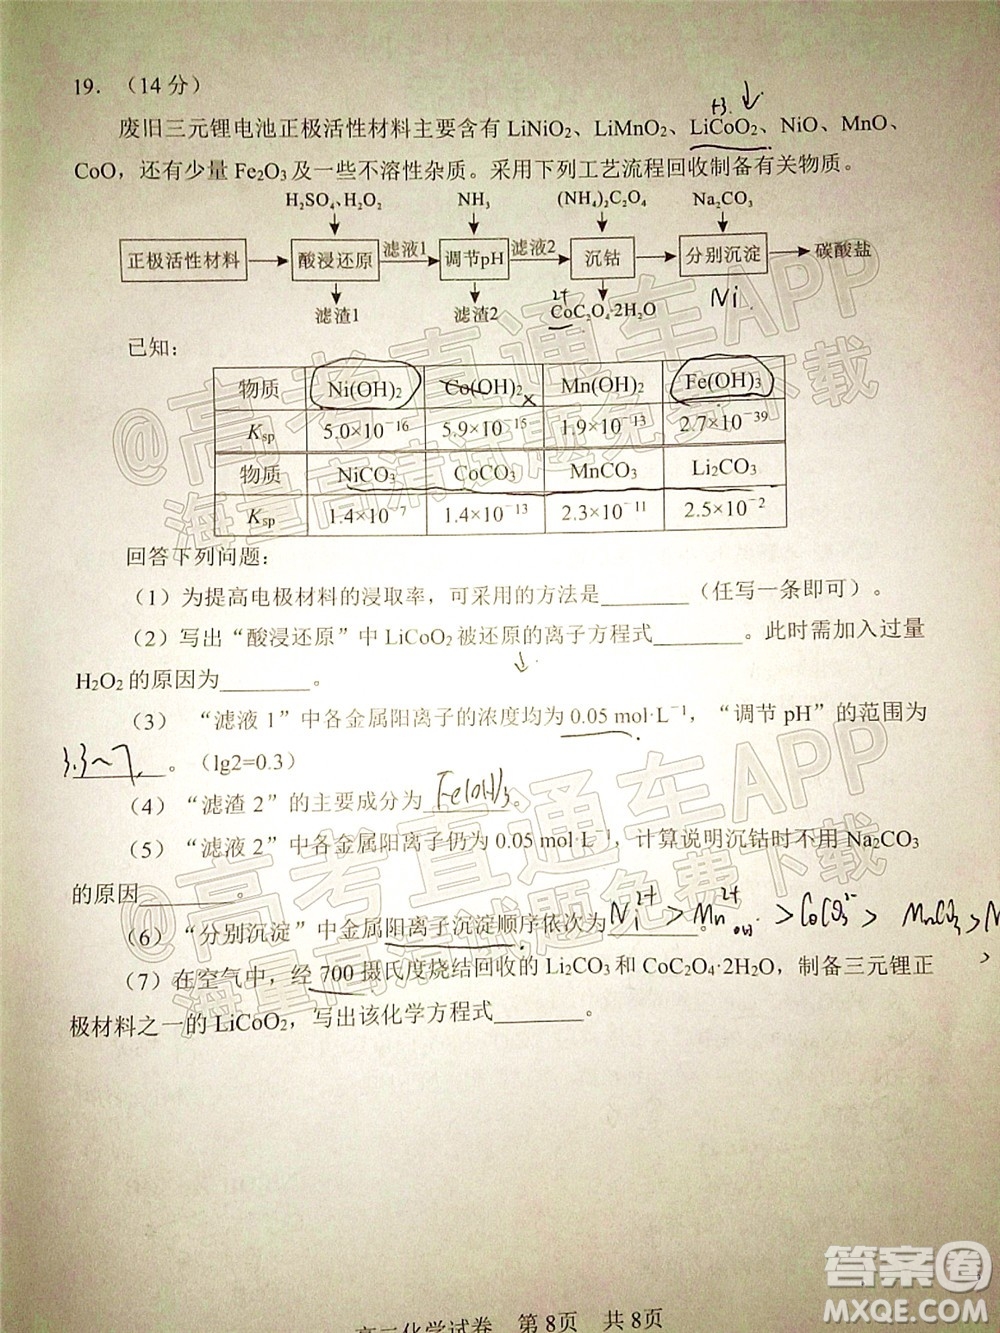 19. （14 分）
+3.
废旧三元锂电池正极活性材料主要含有 LiNiO₂、LiMnO₂、LiCoO₂、NiO、MnO、
CoO，还有少量 Fe₂O₃及一些不溶性杂质。采用下列工艺流程回收制备有关物质。
H₂SO₄、H₂O₂ NH₃ (NH₄)₂C₂O₄ Na₂CO₃
正极活性材料 酸浸还原 滤液1 调节pH 滤液2 沉钴 分别沉淀 碳酸盐
滤渣1 滤渣2 2+ CoC₂O₄·2H₂O Ni
已知:
物质 Ni(OH)₂ Co(OH)₂ x Mn(OH)₂ Fe(OH)₃
Ksp 5.0×10⁻¹⁶ 5.9×10⁻¹⁵ 1.9×10⁻¹³ 2.7×10⁻³⁹
物质 NiCO₃ CoCO₃ MnCO₃ Li₂CO₃
Ksp 1.4×10⁻⁷ 1.4×10⁻¹³ 2.3×10⁻¹¹ 2.5×10⁻²
回答下列问题:
（1）为提高电极材料的浸取率，可采用的方法是_______（任写一条即可）。
（2）写出“酸浸还原”中 LiCoO₂被还原的离子方程式_______。此时需加入过量
H₂O₂的原因为_______。
（3）“滤液 1”中各金属阳离子的浓度均为 0.05 mol·L⁻¹，“调节 pH”的范围为
3.3~7。（lg2=0.3）
（4）“滤渣 2”的主要成分为 Fe(OH)₃。
（5）“滤液 2”中各金属阳离子仍为 0.05 mol·L⁻¹，计算说明沉钴时不用 Na₂CO₃
的原因_______。
（6）“分别沉淀”中金属阳离子沉淀顺序依次为_______。
（7）在空气中，经 700 摄氏度烧结回收的 Li₂CO₃和 CoC₂O₄·2H₂O，制备三元锂正
极材料之一的 LiCoO₂，写出该化学方程式_______。
高二化学试卷 第 8页 共 8页
@高考直通车APP
海量高清试题免费下载
@高考直通车APP
海量高清试题免费下载
答案圈
MXQE.COM